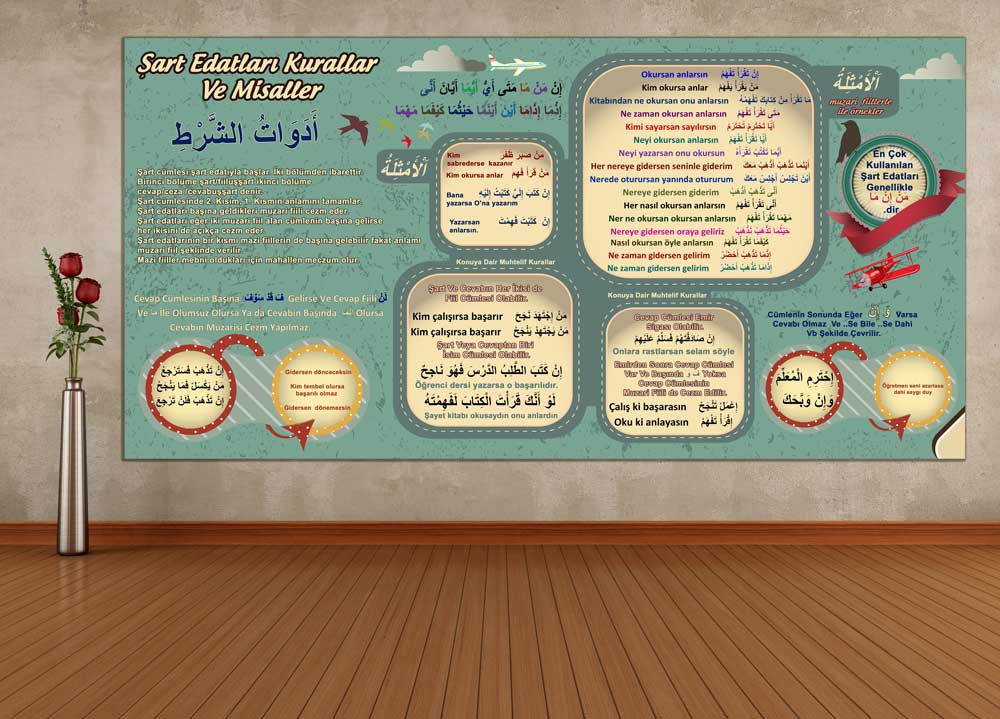 Şart Edatları Kurallar
Ve Misaller
أَدَوَاتُ الشَّرْطِ
Şart cümlesi şart edatıyla başlar. İki bölümden ibarettir.
Birinci bölüme şart/fiilüşşart ikinci bölüme
cevap/ceza /cevabuşşart denir.
Şart cümlesinde 2. Kısım, 1. Kısmın anlamını tamamlar.
Şart edatları başına geldikleri muzari fiili cezm eder.
Şart edatları eğer iki muzari fiil alan cümlenin başına gelirse
her ikisini de açıkça cezm eder.
Şart edatlarının bir kısmı mazi fiillerin de başına gelebilir fakat anlamı
muzari fiil şeklinde verilir.
Mazi fiiller mebni oldukları için mahallen meczum olur.
إِنْ مَنْ مَا مَتَى أَيُّ أَيَّمَا أَيَّانَ أَنَّى
إِذْمَا إِذَامَا أَيْنَ أَيْنَمَا حَيْثُمَا كَيْفَمَا مَهْمَا
اَلْأَمْثِلَةُ
Kim sabrederse kazanır مَنْ صَبَرَ ظَفَرَ
Kim okursa anlar مَنْ قَرَأَ فَهِمَ
Bana yazarsa O'na yazarım إِنْ كَتَبَ إِلَيَّ كَتَبْتُ إِلَيْهِ
Yazarsan anlarsın. إِنْ كَتَبْتَ فَهِمْتَ
Okursan anlarsın إِنْ تَقْرَأْ تَفْهَمْ
Kim okursa anlar مَنْ يَقْرَأْ يَفْهَمْ
Kitabından ne okursan onu anlarsın مَا تَقْرَأْ مِنْ كِتَابِكَ تَفْهَمْهُ
Ne zaman okursan anlarsın مَتَى تَقْرَأْ تَفْهَمْ
Kimi sayarsan sayılırsın أَيًّا تَحْتَرِمْ تُحْتَرَمْ
Neyi okursan anlarsın أَيًّا تَقْرَأْ تَفْهَمْ
Neyi yazarsan onu okursun أَيَّمَا تَكْتُبْ تَقْرَأْهُ
Her nereye gidersen seninle giderim أَيْنَمَا تَذْهَبْ أَذْهَبْ مَعَكَ
Nerede oturursan yanında otururum أَيْنَ تَجْلِسْ أَجْلِسْ مَعَكَ
Nereye gidersen giderim أَنَّى تَذْهَبْ أَذْهَبْ
Her nasıl okursan anlarsın أَنَّى تَقْرَأْ تَفْهَمْ
Her ne okursan anlarsın مَهْمَا تَقْرَأْ تَفْهَمْ
Nereye gidersen oraya geliriz حَيْثُمَا تَذْهَبْ نَذْهَبْ
Nasıl okursan öyle anlarsın كَيْفَمَا تَقْرَأْ تَفْهَمْ
Ne zaman gidersen gelirim إِذْمَا تَذْهَبْ أَحْضُرْ
Ne zaman gidersen gelirim إِذَامَا تَذْهَبْ أَحْضُرْ
اَلْأَمْثِلَةُ
muzari fiillerle
ile örnekler
En Çok
Kullanılan
Şart Edatları
Genellikle
مَنْ إِنْ مَا
.dir
Cevap Cümlesinin Başına فَ قَدْ سَوْفَ لَنْ Gelirse Ve Cevap Fiili
Ve Olumsuz Olursa Ya da Cevabın Başında Olursa
Cevabın Muzarisi Cezm Yapılmaz.
إِنْ تَذْهَبْ فَسَتَرْجِعُ
مَنْ يَكْسَلْ فَمَا يَنْجَحُ
إِنْ تَذْهَبْ فَلَنْ تَرْجِعَ
Gidersen döneceksin
Kim tembel olursa
başarılı olmaz
Gidersen dönemezsin
Konuya Dair Muhtelif Kurallar
Şart Ve Cevabın Her İkisi de
Fiil Cümlesi Olabilir.
Kim çalışırsa başarır مَنْ اِجْتَهَدَ نَجَحَ
Kim çalışırsa başarır مَنْ يَجْتَهِدْ يَنْجَحْ
Şart Veya Cevaptan Biri
İsim Cümlesi Olabilir.
إِنْ كَتَبَ الطَّلِبُ الدَّرْسَ فَهُوَ نَاجِحٌ
Öğrenci dersi yazarsa o başarılıdır.
لَوْ أَنَّكَ قَرَأْتَ الْكِتَابَ لَفَهِمْتَهُ
Şayet kitabı okusaydın onu anlardın
Konuya Dair Muhtelif Kurallar
Cevap Cümlesi Emir
Sigası Olabilir.
إِنْ صَادَفْتَهُمْ فَسَلِّمْ عَلَيْهِمْ
Onlara rastlarsan selam söyle
Emirden Sonra Cevap Cümlesi
Var Ve Başında ف و Yoksa
Cevap Cümlesinin
Muzari Fiili de Cezm Edilir.
Çalış ki başarasın اِعْمَلْ تَنْجَحْ
Oku ki anlayasın اِقْرَأْ تَفْهَمْ
Cümlenin Sonunda Eğer وَإِنْ Varsa
Cevabı Olmaz Ve ..Se Bile ..Se Dahi
Vb Şekilde Çevrilir.
اِحْتَرِمِ الْمُعَلِّمَ
وَإِنْ وَبَّخَكَ
Öğretmen seni azarlasa
dahi saygı duy